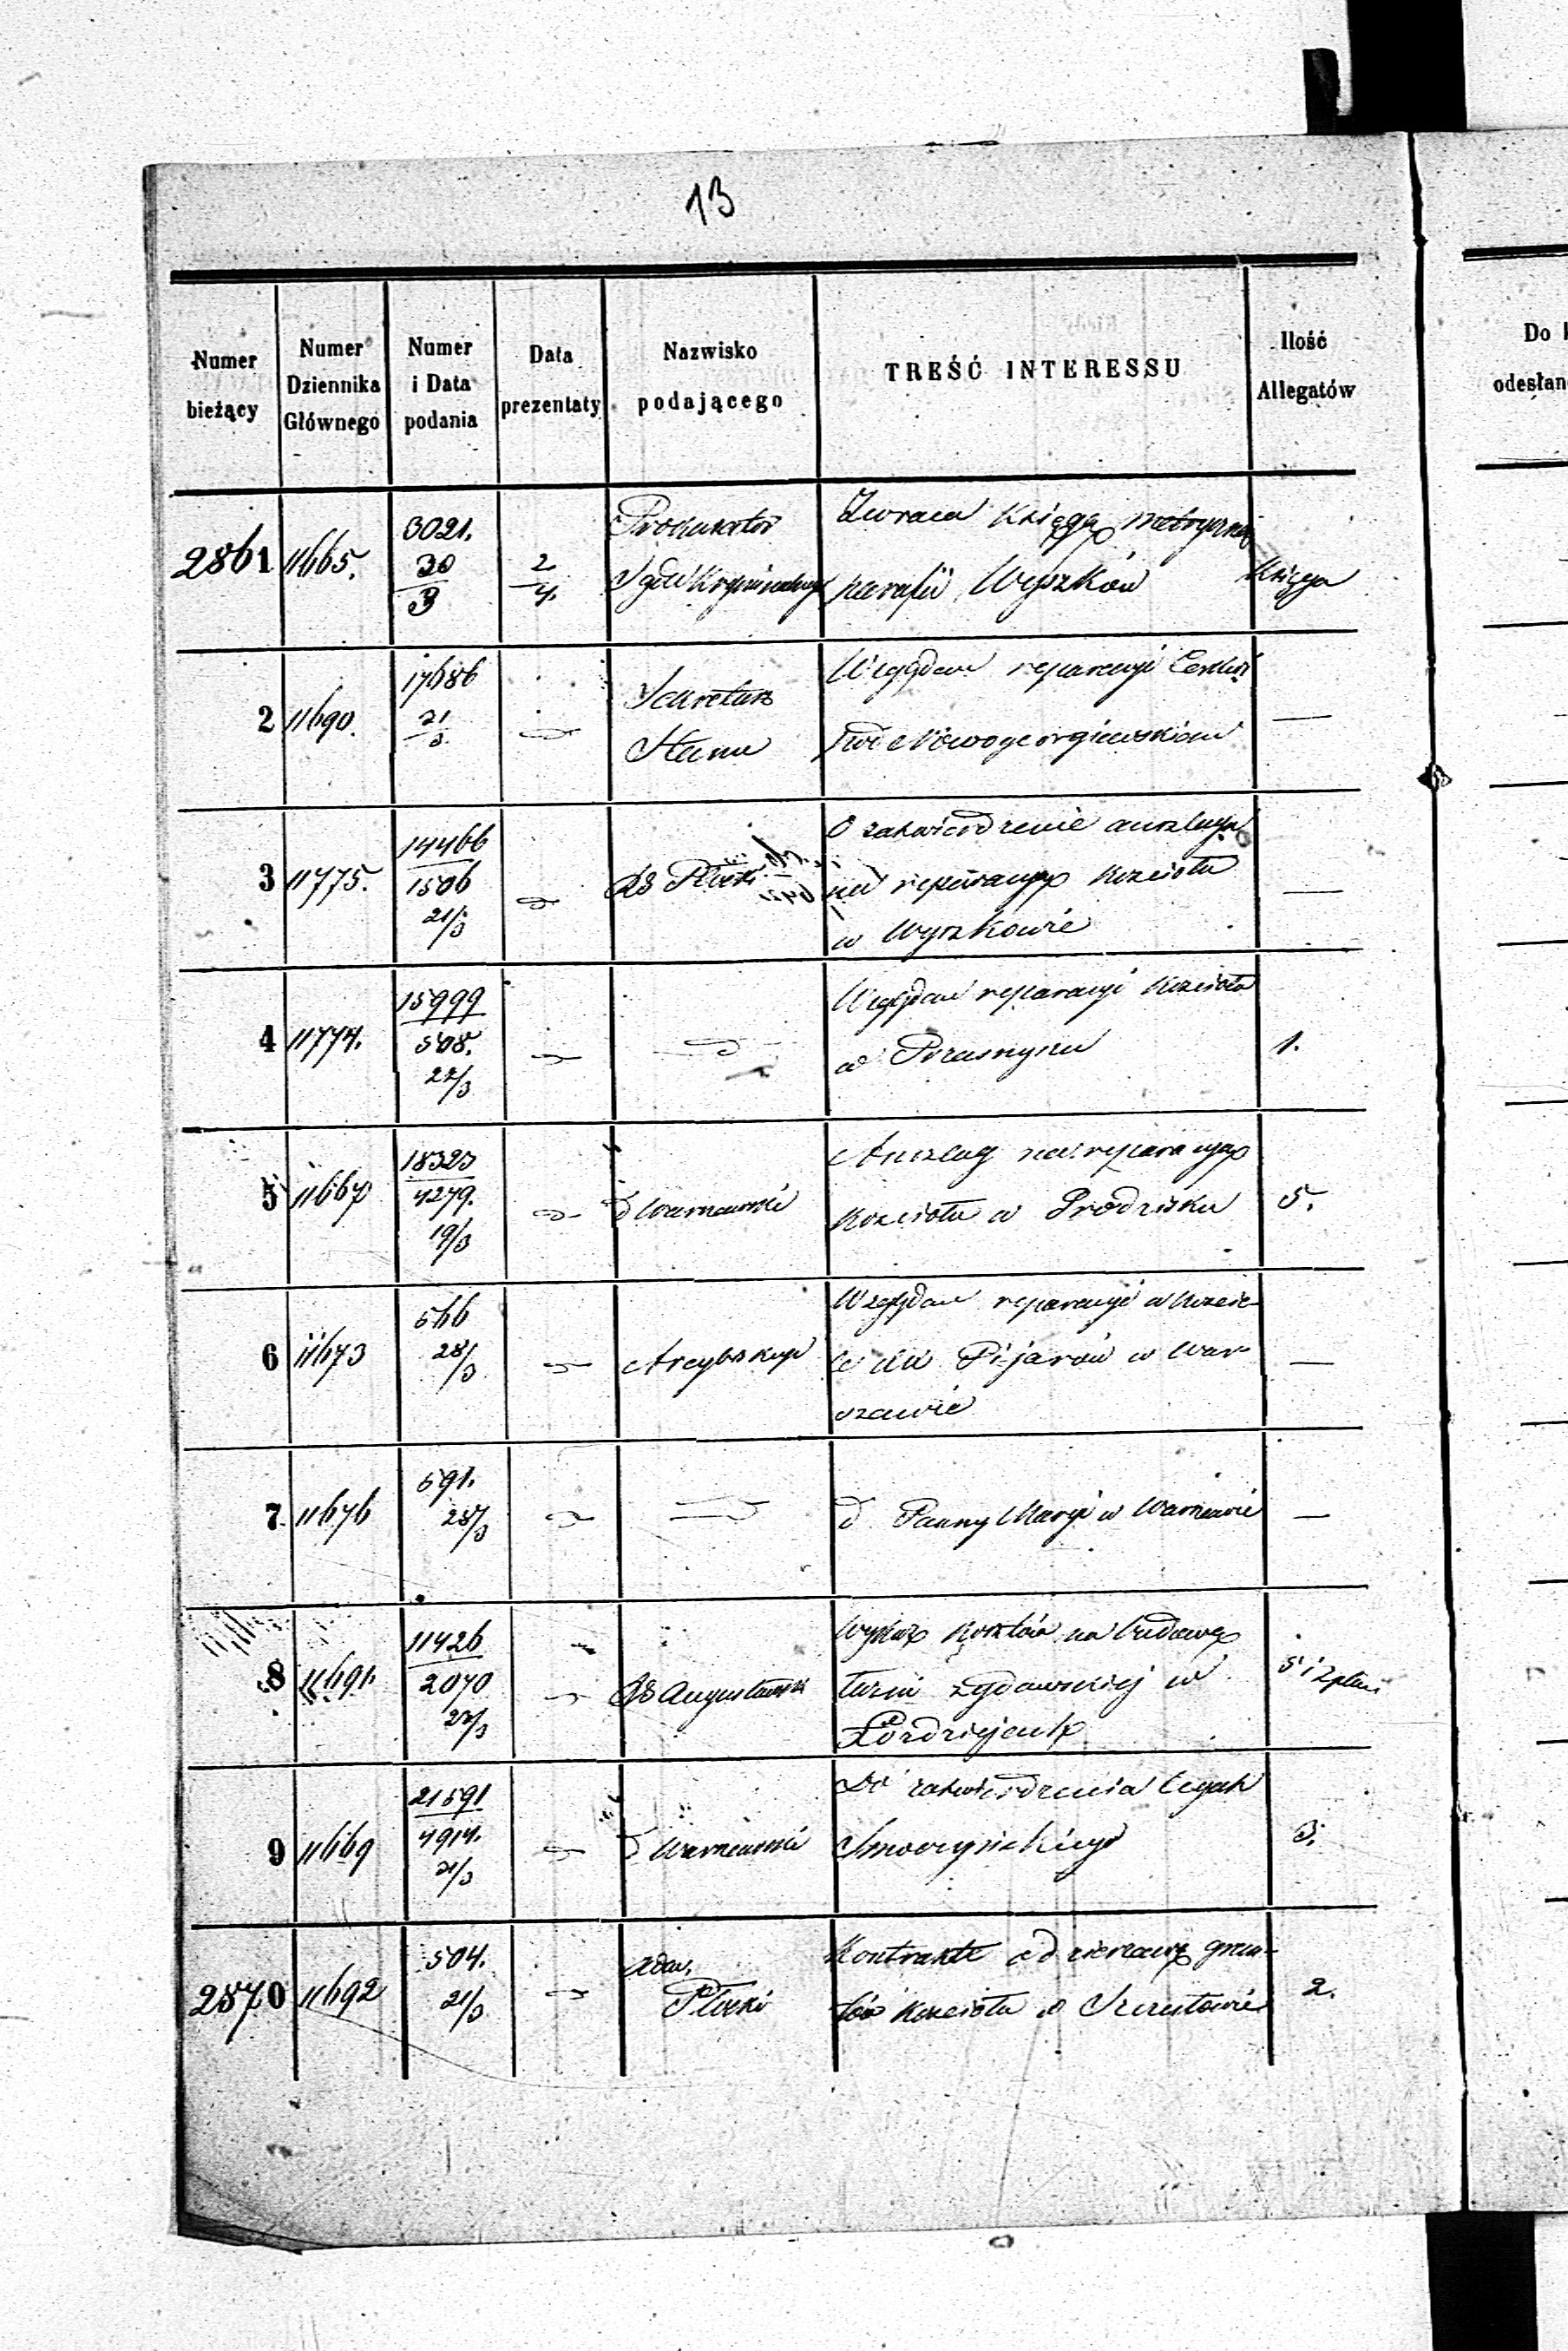 13
Numer bieżący
Numer Dziennika Głównego
Numer i Data podania
Data prezentaty
Nazwisko podającego
TREŚĆ INTERESSU
Ilość Allegatów
Do
odesłan
2861 11665. 3021. 30/3 2/4. Prokurator Zwraca Księgę metryczną
parafii Wyszków Księga
2 11690. 17686 21/3 Sekretarz Względem reparacyi Cerkwi
Stanu Nowogeorgiewskiem —
3 11775. 14466 O zatwierdzenie anszlagu
1506 21/3 na reparacyę Kościoła —
w Wyszkowie
4 11774. 15999 Względem reparacyi Kościoła
508. 22/3 w Przasnyszu 1.
5 11667 18323 Anszlag na reparacyę
4279. 19/3 Warszawski Kościoła w Grodzisku 5.
6 11673 566 Względem reparacyi w Koście-
28/3 Arcybiskup le Pijarów w War- —
szawie
7 11676 591. 28/3 d Panny Maryi w Warszawie —
8 11691. 11426 Wykaz Kosztów na budowę
2070 22/3 Augustowski łaźni żydowskiej w 5 i 2 plan
9 11669 21591 Do zatwierdzenia
4914. 21/3 d Warszawski 3.
2870 11692 504. Adm. Kontrakt dzierżawy grun-
21/3 Płocki tów Kościoła w 2.